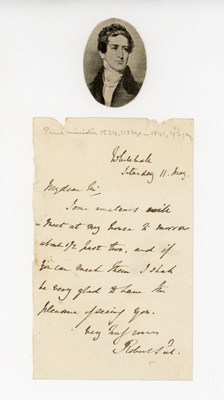 Prime minister 1834, 1841
Whitehall
Saturday 11. May
My dear Sir
Some amateurs will
meet at my house to morrow
about 1/2 past two, and if
you can meet them I shall
be very glad to have the
pleasure of seeing you.
Very truly yours
Robert Peel.